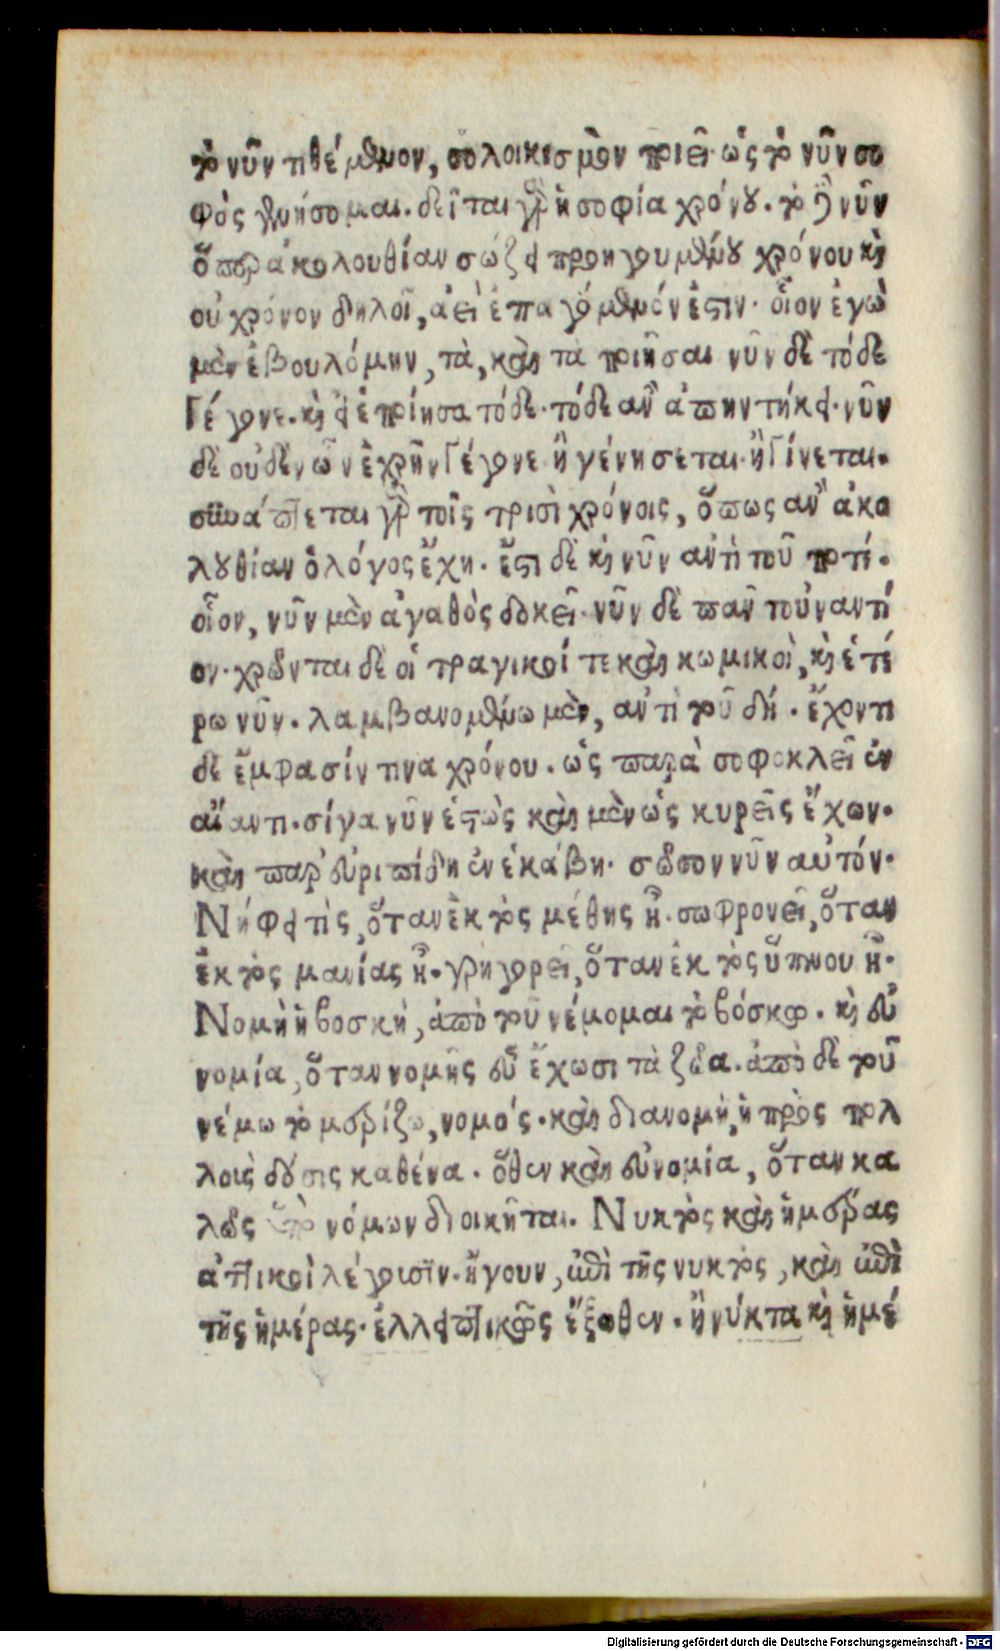 τὸ νῦν τιθέμενον, σολοικισμὸν ποιεῖ· ὡς τὸ νῦν σο
φὸς γενήσομαι. δεῖται γὰρ ἡ σοφία χρόνου. τὸ δὲ νῦν
ὅπερ ἀκολουθίαν σώζει προηγουμένου χρόνου καὶ
οὐ χρόνον δηλοῖ, ἀεὶ ἐπαγόμενόν ἐστιν· οἷον ἐγὼ
μὲν ἐβουλόμην, τὰ, καὶ τὰ ποιῆσαι νῦν δὲ τόδε
Γέγονε. καὶ εἰ ἐποίησα τόδε· τόδε ἂν ἀπηντήκει· νῦν
δὲ οὐδὲν ὧν ἐχρῆν Γέγονε ἢ γένησεται· ἢ Γίνεται.
συνάπτεται γὰρ τοῖς τρισὶ χρόνοις, ὅπως ἂν ἀκο
λουθίαν ὁ λόγος ἔχη. ἔστι δὲ καὶ νῦν ἀντὶ τοῦ ποτέ.
οἷον, νῦν μὲν ἀγαθὸς δοκεῖ· νῦν δὲ πᾶν τοὐναντί
ον· χρῶνται δὲ οἱ τραγικοί τε καὶ κωμικοὶ, καὶ ἑτέ
ρω νῦν. λαμβανομένω μὲν, ἀντὶ τοῦ δή. ἔχοντι
δὲ ἔμφασίν τινα χρόνου. ὡς παρὰ σοφοκλεῖ ἐν
αἴαντι. σίγα νῦν ἑστὼς καὶ μὲν ὡς κυρεῖς ἔχων.
καὶ παρ' εὐριπίδη ἐν ἑκάβη. σῶσον νῦν αὐτόν.
Νήφει τὶς, ὅταν ἐκτὸς μέθης ἦ. σωφρονεῖ, ὅταν
ἐκτὸς μανίας ἦ. γρηγορεῖ, ὅταν ἐκτὸς ὕπνου ἦ.
Νομὴ ἡ βοσκή, ἀπὸ τοῦ νέμομαι τὸ βόσκω. καὶ εὐ
νομία, ὅταν νομῆς εὖ ἔχωσι τὰ ζῶα. ἀπὸ δὲ τοῦ
νέμω τὸ μερίζω, νομός. καὶ διανομή, ἡ πρὸς πολ
λοὺς δόσις καθένα. ὅθεν καὶ εὐνομία, ὅταν κα
λῶς ὑπὸ νόμων διοικῆται. Νυκτὸς καὶ ἡμέρας
ἀττικοὶ λέγουσιν. ἤγουν, ἐπὶ τῆς νυκτὸς, καὶ ἐπὶ
τῆς ἡμέρας. ἐλλειπτικῶς ἔξωθεν. ἢ νύκτα καὶ ἡμέ
Digitalisierung gefördert durch die Deutsche Forschungsgemeinschaft - DFG